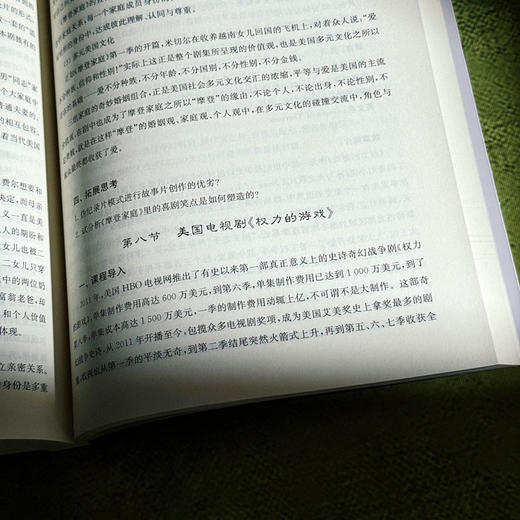 的形式，
本剧独有的
男"同志"家
个大家庭中
普通夫妻的。
的相互包容，
着当代美国
费尔想要和
决定，而母亲
义一直是美
人的期盼和
二女儿也被二
二女儿只穿
体中的两位奶
富翁老爸，却
和个人价值
体现。
立亲密关系。
身份是多重
的身份中，达底彼此理解、认同与尊重。
（2）多元美国文化
《摩登家庭》第一季的开篇，米切尔在收养越南女儿回国的飞机上，对着众人说："爱
不分种族、信仰和性别！"实际上这正是整个剧集所呈现的价值观，也是美国多元文化之所以
的基础——爱不分种族，不分年龄，不分国别，不分性别，不分金钱。
三组家庭的奇妙婚姻组合，正是美国社会多元文化交汇的浓缩，平等与爱是美国的主流
，在剧中也成为了摩登家庭之所以"摩登"的缘由，不论个人，不论出身，不论性别，不
，就是在这样"摩登"的婚姻观、家庭观、个人观中，在多元文化的碰撞交流中，角色与
最终都收获了爱。
四、拓展思考
1. 伪纪录片模式进行故事片创作的优劣？
2. 试分析《摩登家庭》里的喜剧笑点是如何塑造的？
第八节 美国电视剧《权力的游戏》
一、课程导入
2011年，美国HBO电视网推出了有史以来第一部真正意义上的史诗奇幻战争剧《权力
的游戏》，单集制作费用高达600万美元，到第六季，单集制作费用已达到1 000万美元，到了
第八季，单集成本高达1 500万美元，一季的制作费用动辄上亿，不可谓不是大制作。这部奇
幻战争史诗，从2011年开播至今，包揽众多电视剧奖项，成为美国艾美奖史上拿奖最多的剧
集，收视也从第一季的平淡无奇，到第二季结尾突然火箭式上升，再到第五、六、七季收获全